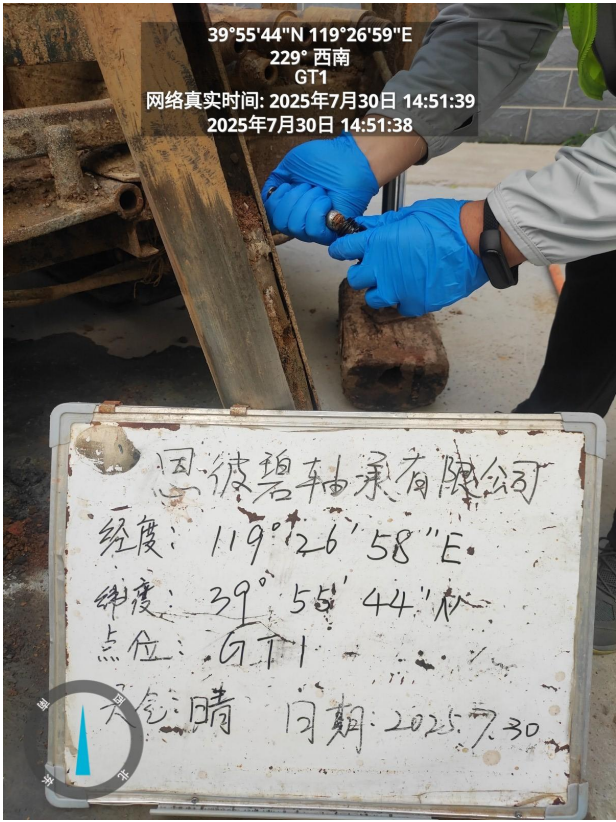 39°55'44"N 119°26'59"E
229° 西南
GT1
网络真实时间: 2025年7月30日 14:51:39
2025年7月30日 14:51:38
恩彼碧轴承有限公司
经度: 119°26'58"E
纬度: 39°55'44"N
点位: GT1
天气:晴 日期:2025.7.30
西
南
北
东